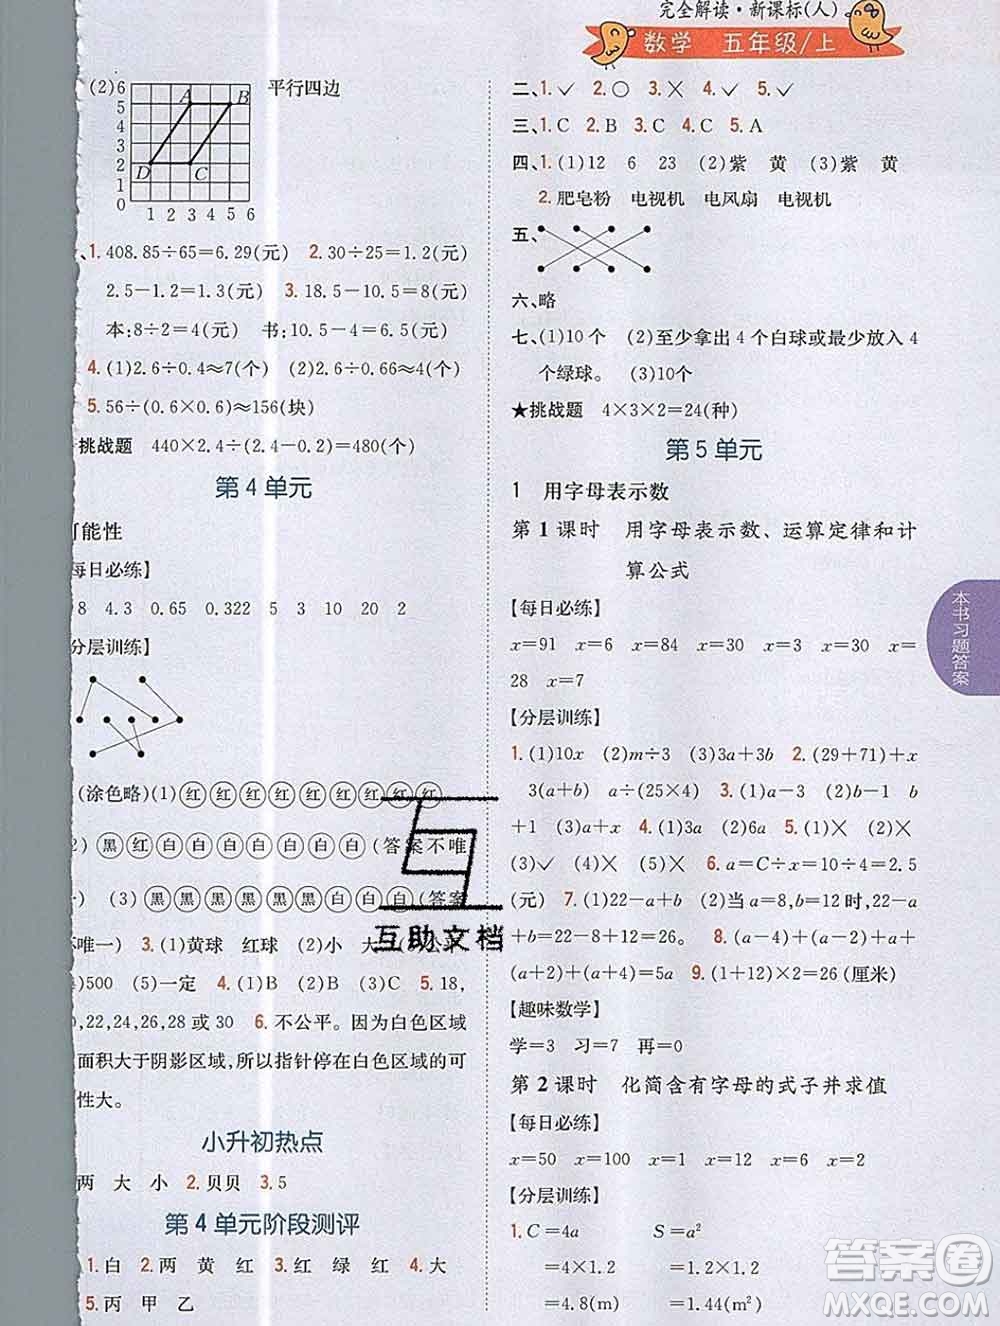 完全解读·新课标(人)
数学 五年级/上
(2) 6 平行四边
5 A B
4
3
2 D C
1
0 1 2 3 4 5 6
、1. 408.85÷65=6.29(元) 2. 30÷25=1.2(元)
2.5-1.2=1.3(元) 3. 18.5-10.5=8(元)
本:8÷2=4(元) 书:10.5-4=6.5(元)
4. (1)2.6÷0.4≈7(个) (2)2.6÷0.4≈6(个)
5. 56÷(0.6×0.6)≈156(块)
挑战题 440×2.4÷(2.4-0.2)=480(个)
第4单元
可能性
每日必练】
8 4.3 0.65 0.322 5 3 10 20 2
分层训练】
(涂色略)(1)红红红红红红红红
2)黑红白白白白白白(答案不唯
一) (3)黑黑黑黑黑黑白白白(答案
不唯一) 3. (1)黄球 红球 (2)小 大
500 (5)一定 4. (1)B (2)B (3)C 5. 18,
20,22,24,26,28或30 6. 不公平。因为白色区域
面积大于阴影区域,所以指针停在白色区域的可
性大。
小升初热点
两 大 小 2. 贝贝 3. 5
第4单元阶段测评
1. 白 2. 两 黄 红 3. 红 绿 红 4. 大
5. 丙 甲 乙
二、1. ✓ 2. ○ 3. ✕ 4. ✓ 5. ✓
三、1. C 2. B 3. C 4. C 5. A
四、1. (1)12 6 23 (2)紫 黄 (3)紫 黄
2. 肥皂粉 电视机 电风扇 电视机
五、
六、略
七、(1)10个 (2)至少拿出4个白球或最少放入4
个绿球。 (3)10个
★挑战题 4×3×2=24(种)
第5单元
1 用字母表示数
第1课时 用字母表示数、运算定律和计
算公式
【每日必练】
x=91 x=6 x=84 x=30 x=3 x=
28 x=7
【分层训练】
1. (1)10x (2)m÷3 (3)3a+3b 2. (29+71)+x
3(a+b) a÷(25×4) 3. (1)b-2 (2)b-1 b
+1 (3)a÷b 4. (1)3a (2)6a 5. (1)✕ (2)✕
(3)✓ (4)✕ (5)✕ 6. a=C÷x=10÷4=2.5
(元) 7. (1)22-a+b (2)当a=8,b=12时,22-a
+b=22-8+12=26 8. (a-4)+(a-2)+a+(a
+2)+(a+4)=5a 9. (1+12)×2=26(厘米)
【趣味数学】
学=3 习=7 再=0
第2课时 化简含有字母的式子并求值
【每日必练】
x=50 x=100 x=1 x=2 x=8
【分层训练】
1. C=4a S=a²
=4×1.2 =1.2×1.2
=4.8(m) =1.44(m²)
本书习题答案
互助文档
答案圈
MXQE.COM